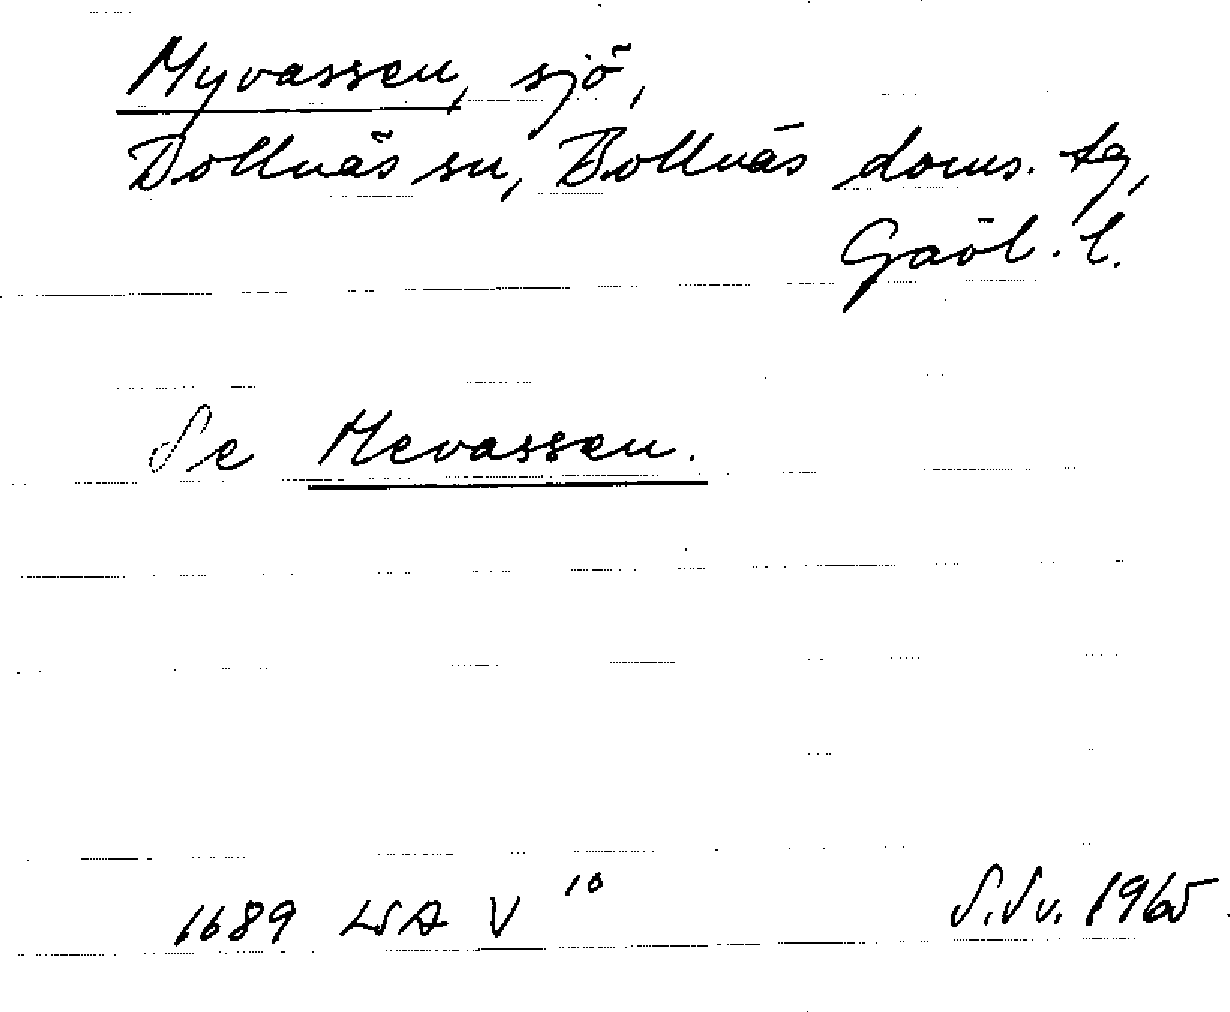 Myvassen, sjö,
Bollnäs sn, Bollnäs doms. tg,
Gävl. l.
Se Mevassen.
1689 LSA V 10
S.Sv. 1965